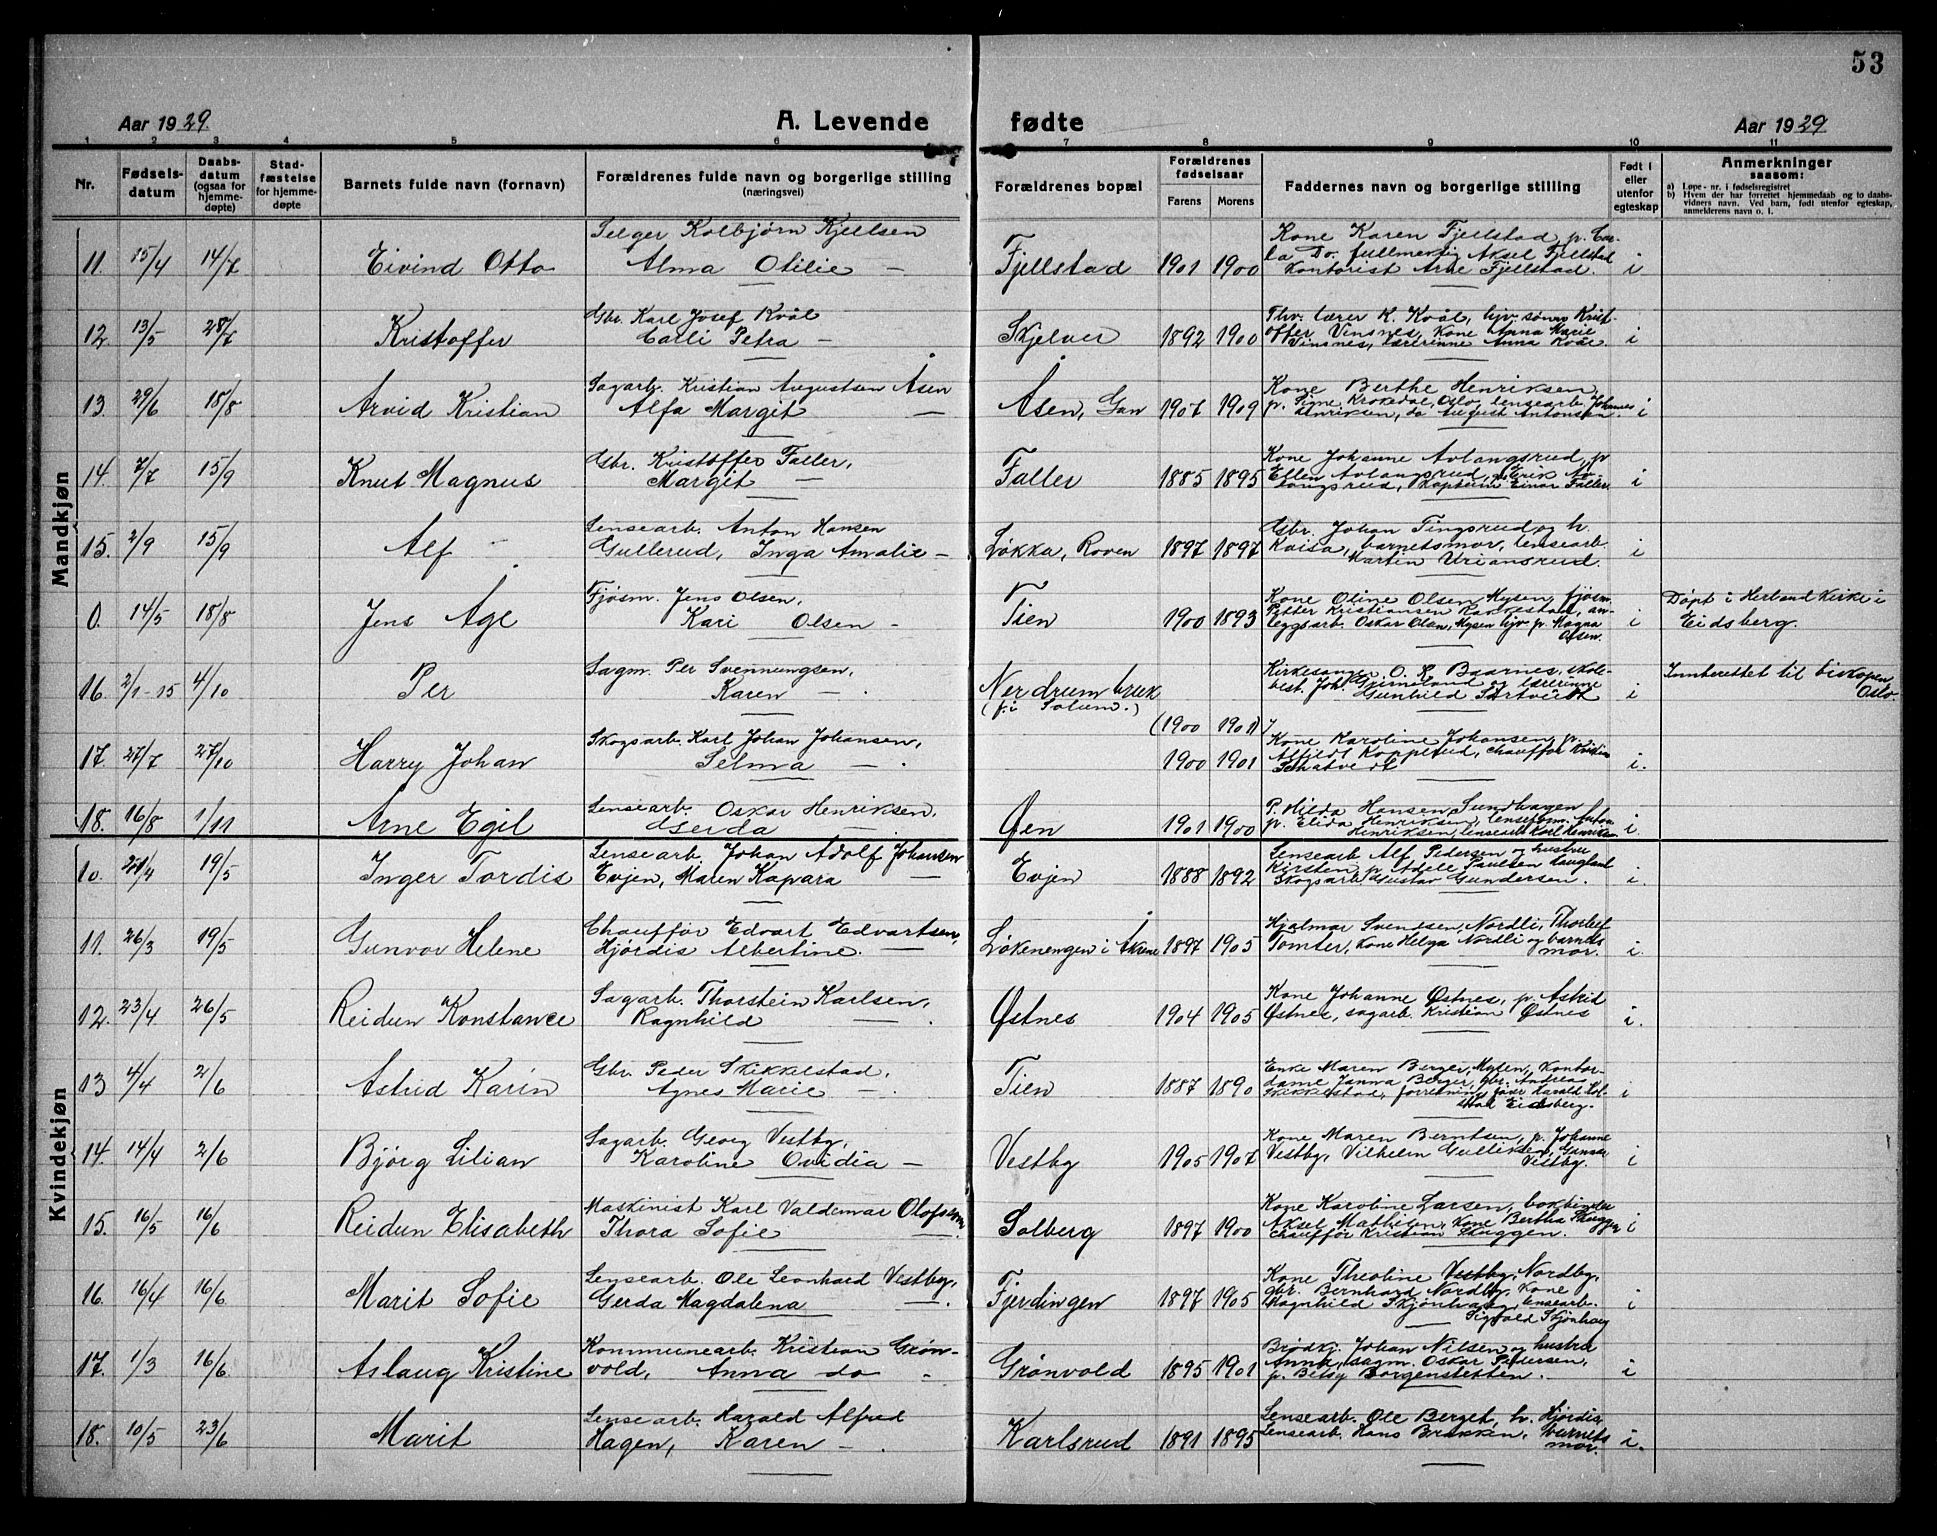 53
Aar 1929. A. Levende fødte Aar 1929
1 2 3 4 5 6 7 8 9 10 11
Nr. Fødselsdatum Daabsdatum (ogsaa for hjemmedøpte) Stadfæstelse for hjemmedøpte Barnets fulde navn (fornavn) Forældrenes fulde navn og borgerlige stilling (næringsvei) Forældrenes bopæl Forældrenes fødselsaar Farens Morens Faddernes navn og borgerlige stilling Født i eller utenfor egteskap Anmerkninger saasom:
a) Løpe-nr. i fødselsregistret
b) Hvem der har forrettet hjemmedaab og to daabsvidners navn. Ved barn, født utenfor egteskap, anmelderens navn o. l.
Mandkjøn
11. 15/4 14/7 Eivind Otto Selger Kolbjørn Kjellsen
Alma Otilie — Fjellstad 1901 1900 Kone Karen Fjellstad, p. Car-
la Do. fullmektig Aksel Fjellstad
Kontorist Arne Fjellstad. i
12. 13/5 28/7 Kristoffer Gbr. Karl Josef Kvål
Carli Petra — Skjelver 1892 1900 Fhv. lærer K. Kvål, hjv. sønn Krist-
offer Vinsnes, Kone Anna Marie
Vinsnes, lærerinne Anna Kvåle i
13. 29/6 18/8 Arvid Kristian Sagarb. Kristian Augustsen Åsen
Alfa Margit — Åsen, Gan 1907 1909 Kone Berthe Henriksen,
p. Signe Krokedal, Oslo, lensearb. Johannes
Henriksen, do August Antonsen. i
14. 7/7 15/9 Knut Magnus Gbr. Kristoffer Faller,
Margit — Faller 1885 1895 Kone Johanne Avlangsrud, p
Ellen Avlangsrud, Erik Av-
langsrud, Kaptein Einar Faller. i
15. 2/9 15/9 Alf — Lensearb. Anton Hansen
Gullerud, Inga Amalie — Løkka, Roven 1897 1897 Gbr. Johan Tingsrud og h.
Kaisa, barnets mor, lensearb.
Martin Uriansrud. i
0. 14/5 18/8 Jens Åge Fjøsm. Jens Olsen,
Kari Olsen — Tien 1900 1893 Kone Oline Olsen Mysen, fjøsm.
Petter Kristiansen Rakkestad, an-
leggsarb. Oskar Olsen, Mysen hjv. p. Magna
Olsen. i Døpt i Herland Kirke i
Eidsberg.
16. 2/1-15 4/10 Per Sagm. Per Svennungsen,
Karen — Nerdrum bruk
(f. i Solum.) (1900 1901) Kirkesanger O. R. Baarnes, skole-
best. Joh. Grimeland og lærerinne
Gunhild Sortveidt i Innberettet til biskopen,
Oslo.
17. 27/7 27/10 Harry Johan Skogsarb. Karl Johan Johansen,
Selma — 1900 1901 Kone Karoline Johansen, p.
Alfild Kopperud, chauffør Kristian
i.
18. 16/8 1/11 Arne Egil Lensearb. Oskar Henriksen,
Gerda — Øen 1901 1900 P. Hilda Hansen Sundhagen
p. Elida Henriksen, lenseform. Anton
Henriksen, lensearb. Karl Henriksen i.
Kvindekjøn
10. 21/4 19/5 Inger Tordis Lensearb. Johan Adolf Johansen
Evjen, Maren Kapara — Evjen 1888 1892 Lensearb. Alf Pedersen og hustru
Kirsten, p. Adele Paulsen
Skogsarb. Gustav Gundersen. i.
11. 26/3 19/5 Gunvor Helene Chauffør Edvart Edvartsen,
Hjørdis Albertine. — Løkenengen i Åkrene 1897 1905 Hjalmar Svendsen, Nordli, Thorleif
Tomter, Kone Helga Nordli og barnets
mor. i.
12. 23/4 26/5 Reidun Konstance Sagarb. Thorstein Karlsen,
Ragnhild — Østnes 1904 1905 Kone Johanne Østnes, p. Astrid
Østnes, sagarb. Kristian Østnes i.
13 4/4 2/6 Astrid Karin Gbr. Peder Skikkelstad,
Agnes Marie — Tien 1887 1890 Enke Maren Berger, Mysen, Kontor-
dame Janna Berger, gbr. Andreas
Skikkelstad, forretningsfører Harald Kol-
stad Eidsberg. i
14. 14/4 2/6 Bjørg Lilian Sagarb. Georg Vestby,
Karoline Ovidia — Vestby 1905 1907 Kone Maren Berntsen, p. Johanne
Vestby, Vilhelm Gulliksen, Gunnar
Vestby. i
15. 16/5 16/6 Reidun Elisabeth Maskinist Karl Valdemar Olofsson,
Thora Sofie — Solberg 1897 1900 Kone Karoline Larsen, bokbinder
Aksel Mathisen, Kone Bertha Skuggen
chauffør Kristian Skuggen. i
16. 16/4 16/6 Marit Sofie Lensearb. Ole Leonhard Vestby,
Gerda Magdalena — Fjerdingen 1897 1905 Kone Theoline Vestby, Nordby,
gbr. Bernhard Nordby, Kone
Magnhild Skjønhaug, lensearb.
Sigvald Skjønhaug i
17. 1/3 16/6 Aslaug Kristine Kommunearb. Kristian Grøn-
vold, Anna do — Grønvold 1895 1901 Brødkj. Johan Nilsen og hustru
Anna, sagm. Oskar Pedersen,
p. Betsy Borgenstetten. i
18. 10/5 23/6 Marit Lensearb. Harald Alfred
Hagen, Karen — Karlsrud 1891 1895 Lensearb. Ole Berget, h. Hjørdis,
Lensearb. Hans Brekken, barnets
mor. i.